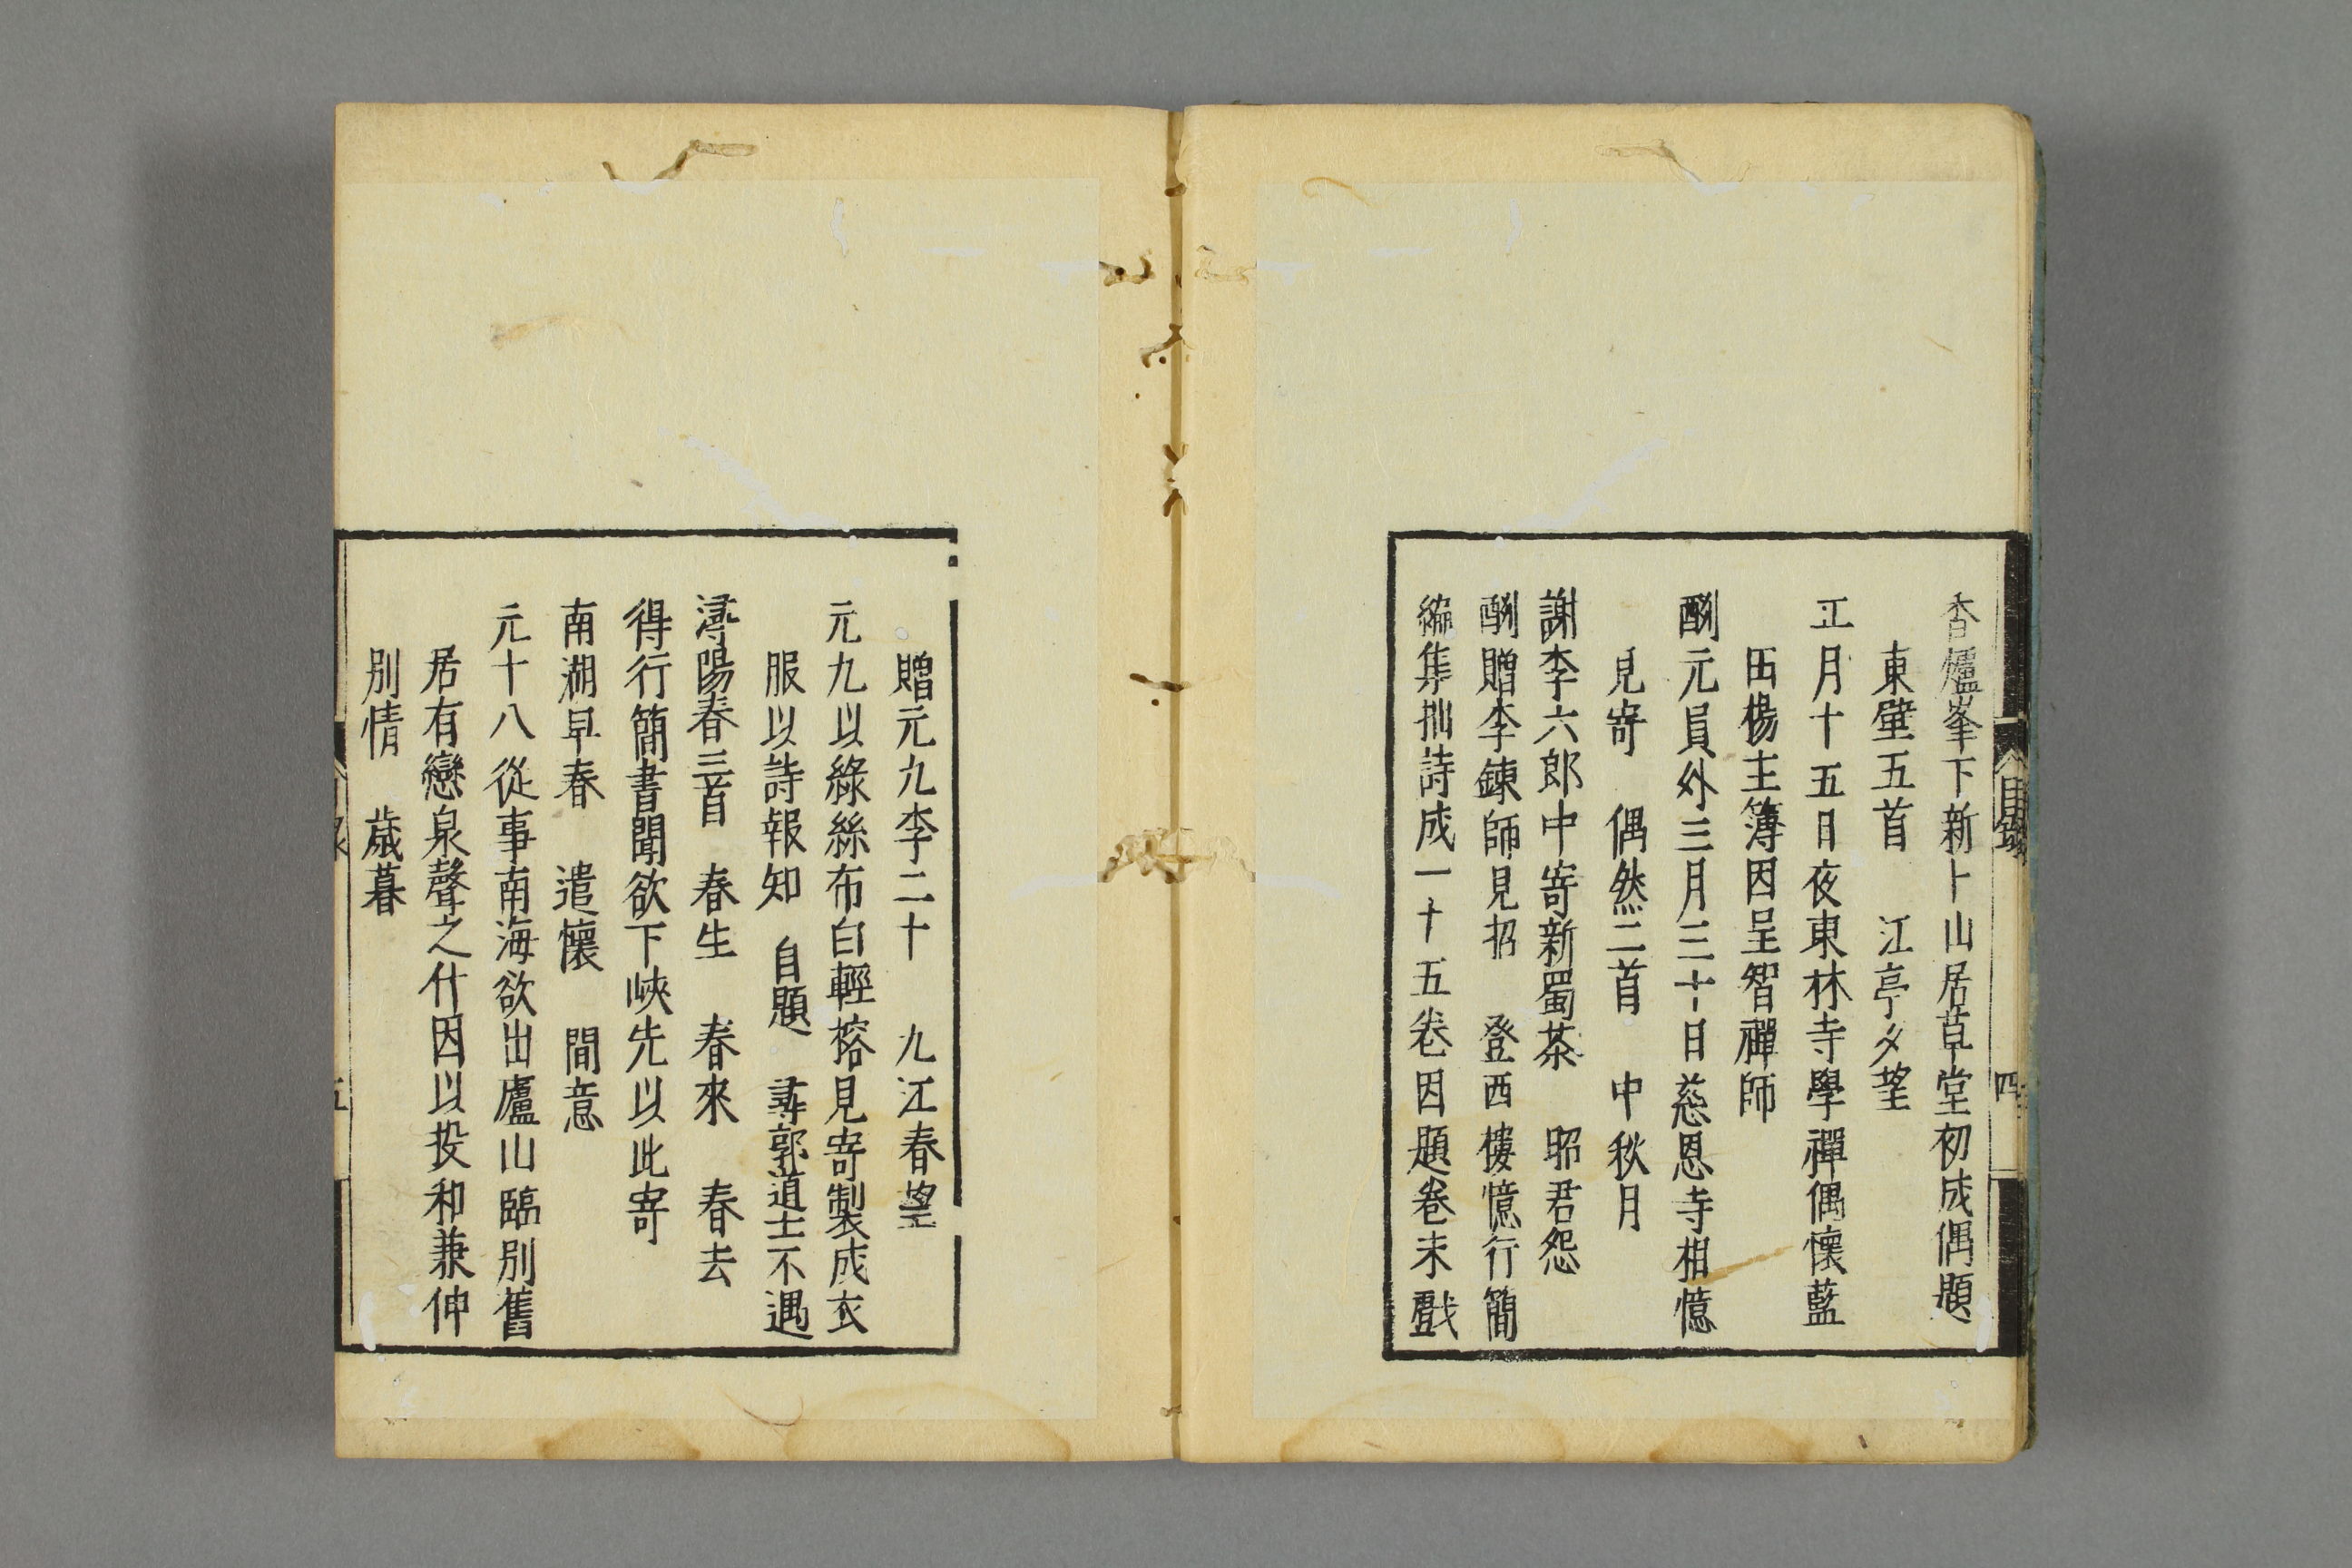 目錄 四
香爐峯下新卜山居草堂初成偶題
東壁五首 江亭夕望
正月十五日夜東林寺學禪偶懷藍
田楊主簿因呈智禪師
酬元員外三月三十日慈恩寺相憶
見寄 偶然二首 中秋月
謝李六郎中寄新蜀茶 昭君怨
酬贈李鍊師見招 登西樓憶行簡
編集拙詩成一十五卷因題卷末戲
贈元九李二十 九江春望
元九以綠絲布白輕榕見寄製成衣
服以詩報知 自題 尋郭道士不遇
潯陽春三首 春生 春來 春去
得行簡書聞欲下峽先以此寄
南湖早春 遣懷 閒意
元十八從事南海欲出廬山臨別舊
居有戀泉聲之什因以投和兼伸
別情 歲暮